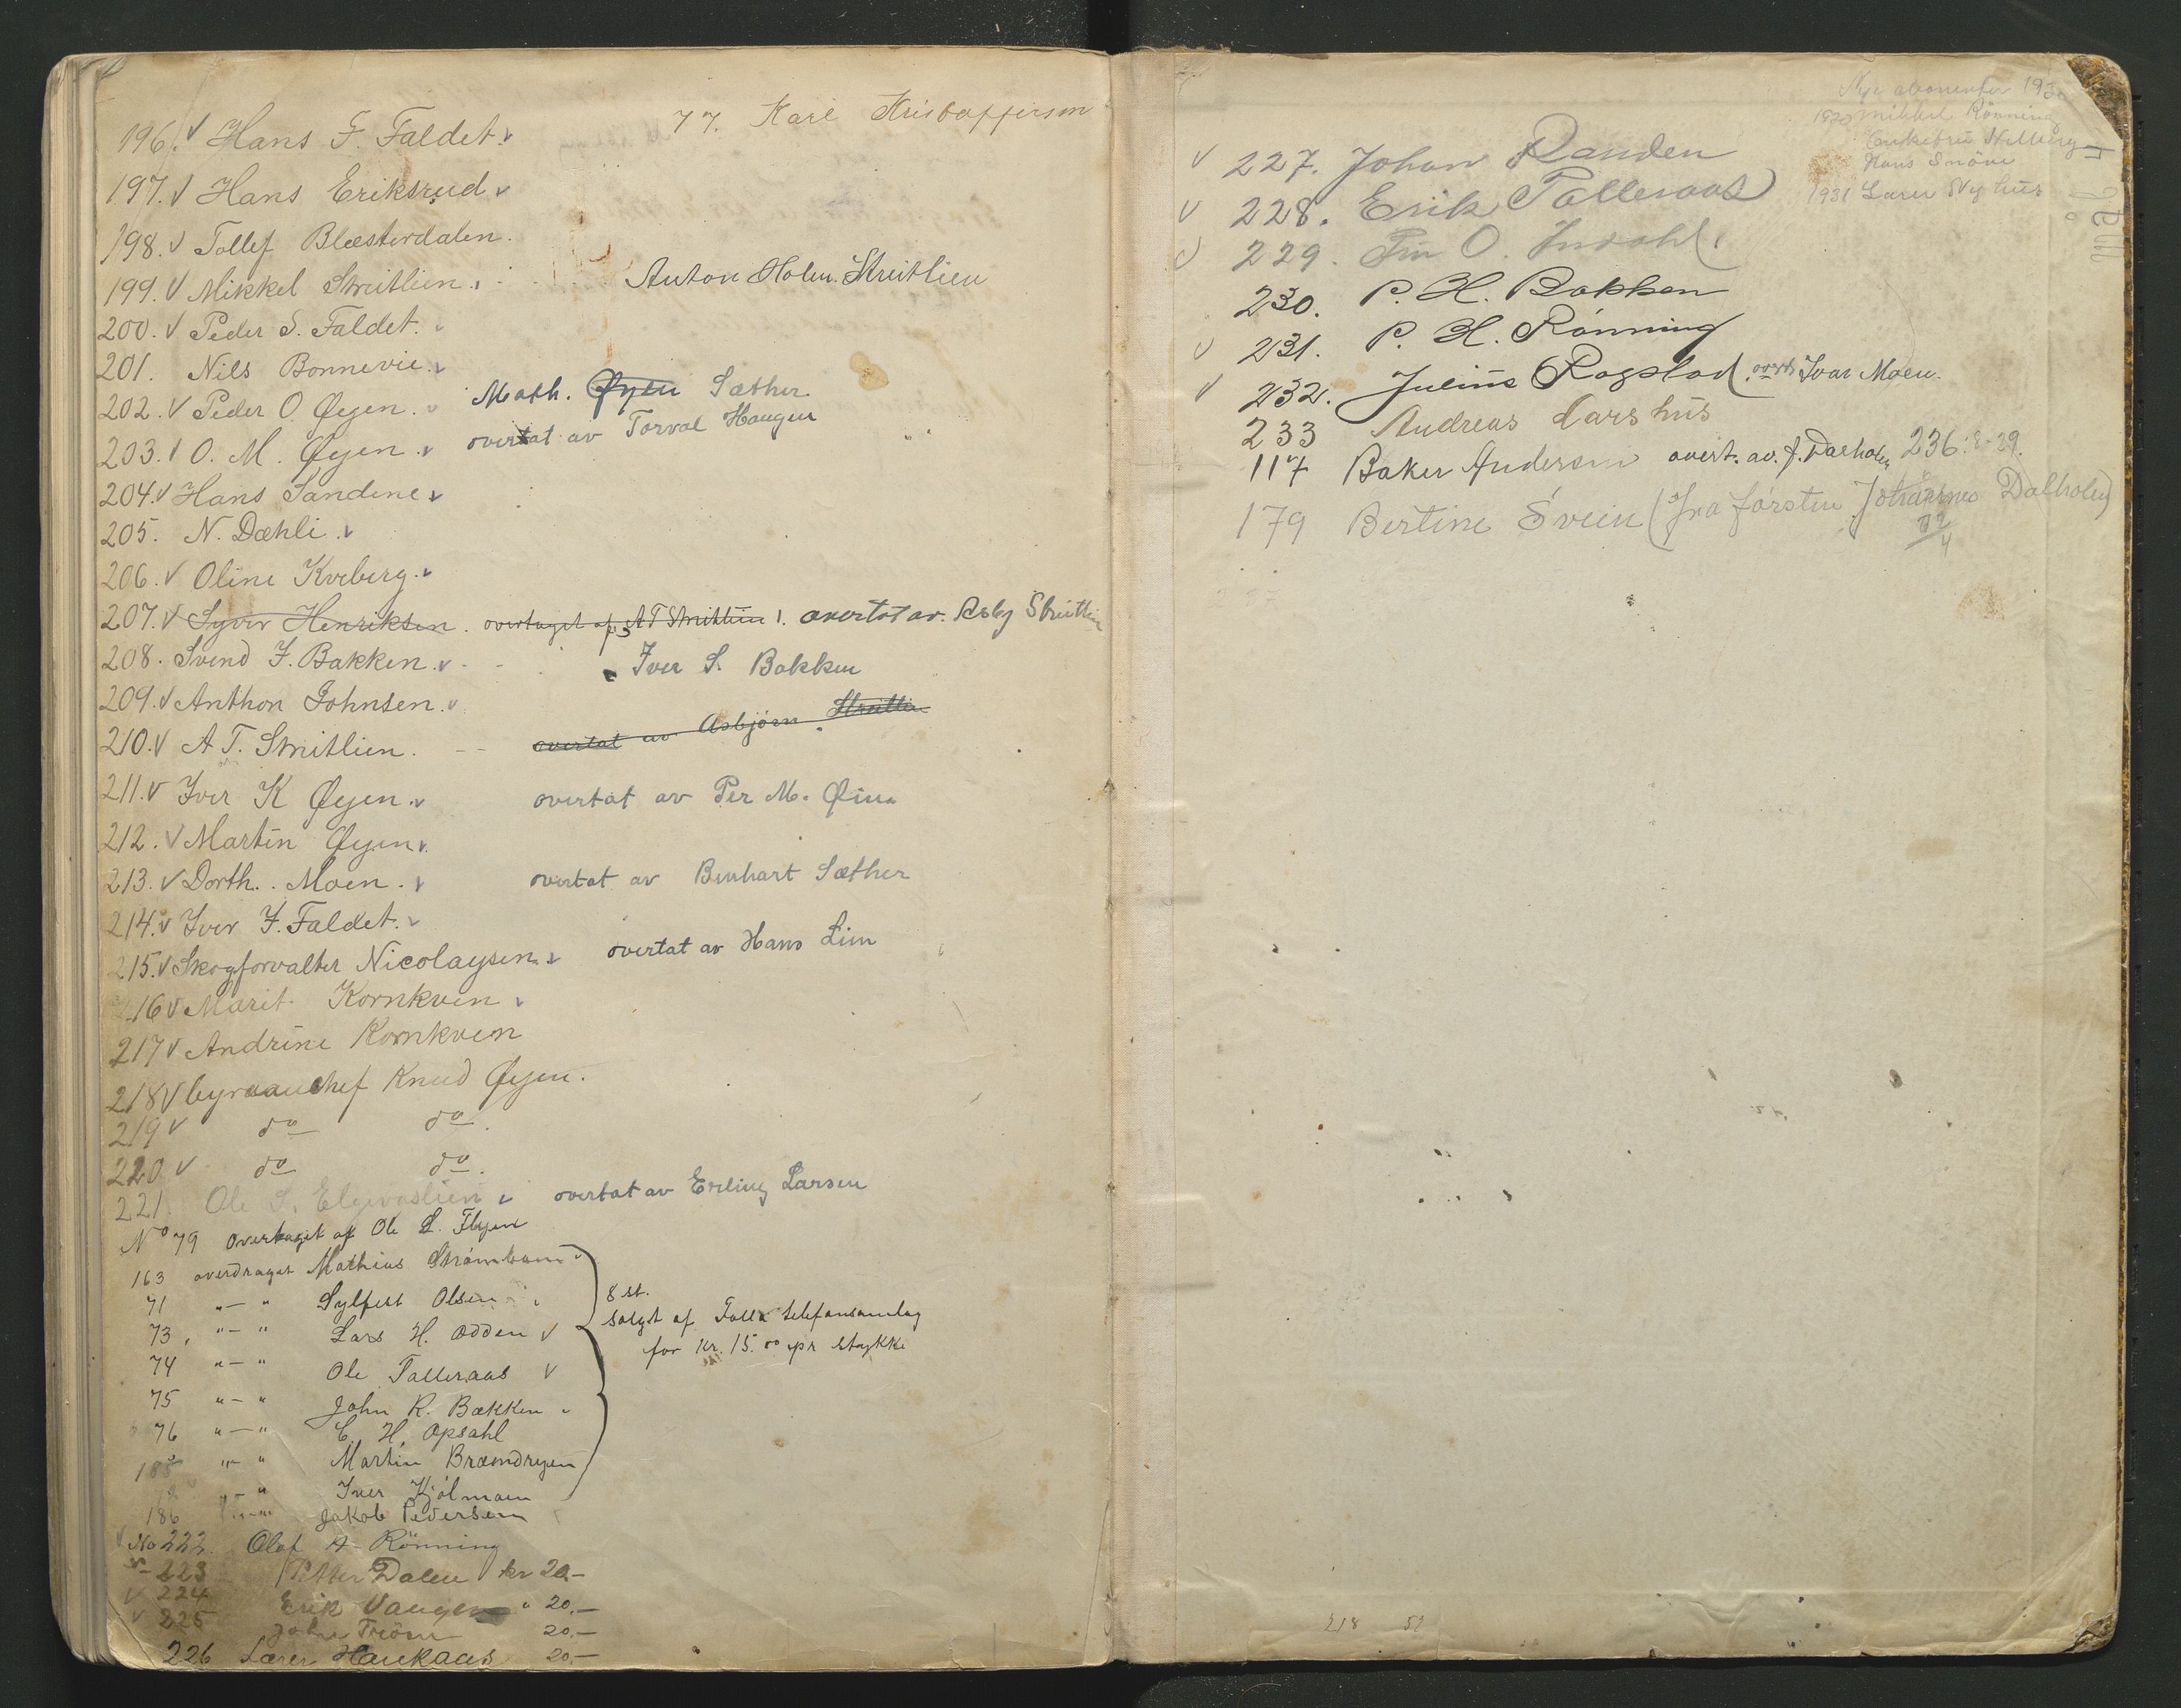 77. Karl Kristoffersen
196. v Hans F. Faldet. v
197. v Hans Eriksrud v
198. v Tollef Blæsterdalen.
199. v Mikkel Streitlien. Anton Holm. Streitlien
200. v Peder S. Faldet. v
201. Nils Bonnevie. v
202. v Peder O Øyen. v Math. Øyen Sæther
203. v O. M. Øyen. v overtat av Torval Haugen
204. v Hans Sandene v
205. N. Dæhli. v
206. v Oline Kveberg. v
207. v Syver Henriksen. overtaget af A T Streitlien 1. overtat av. Asbj Streitlien
208. Svend I. Bakken. v - - Iver S. Bakken
209. v Anthon Johnsen. v
210. v A T. Streitlien. - - overtat av Asbjørn Streitlien
211. v Iver K Øyen. v overtat av Per M. Øien
212. v Martin Øyen v.
213. v Dorth. Moen. v overtat av Benhart Sæther
214. v Iver I. Faldet. v
215. v Skogforvalter Nicolaysen. v overtat av Hans Lien
216 v Marit Kornkven v
217 v Andrine Kornkven
218 v Byraauchef Knud Øyen.
219 v do do.
220 v do do.
221. Ole S. Elgvaslien v overtat av Erling Larsen
No 79 overtaget af Ole L. Flyen
163 overdraget Mathias Strømhaug v
71 " — " Sylfest Olsen 8 st.
73, " — " Lars H. Odden v solgt af Folla telefonsamlag
74 " — " Ole Talleraas v for Kr. 15.00 pr stykke
75 " — " John R. Bakken
76 " — " E. H. Opsahl
185 " — " Martin Brændryen
" — " Iver Kjølmoen
186 " — " Jakob Pedersen
v No 222. Olaf A. Rönning
223 Petter Dalen kr 20.-
v 224 Erik Vangen " 20.—
v 225 John Triøen 20.—
226 Lærer Haukaas 20.—
Nye abonenter 1930
1930 Mikkel Rönning
Enkefru Helberg
Hans Snöve
1931 Lærer Nyhus
v 227. Johan Randen
v 228. Erik Talleraas
v 229. O. Jordahl
230. P. H. Bakken
v 231. P. H. Rönning
v 232. Julius Rogstad, overt Ivar Moen.
233 Andreas Larshus
117 Baker Andersen overt. av. J. Dalholen 236: 8-29.
179 Bertine Svein (fra försten Johannes Dalholen)
218 52